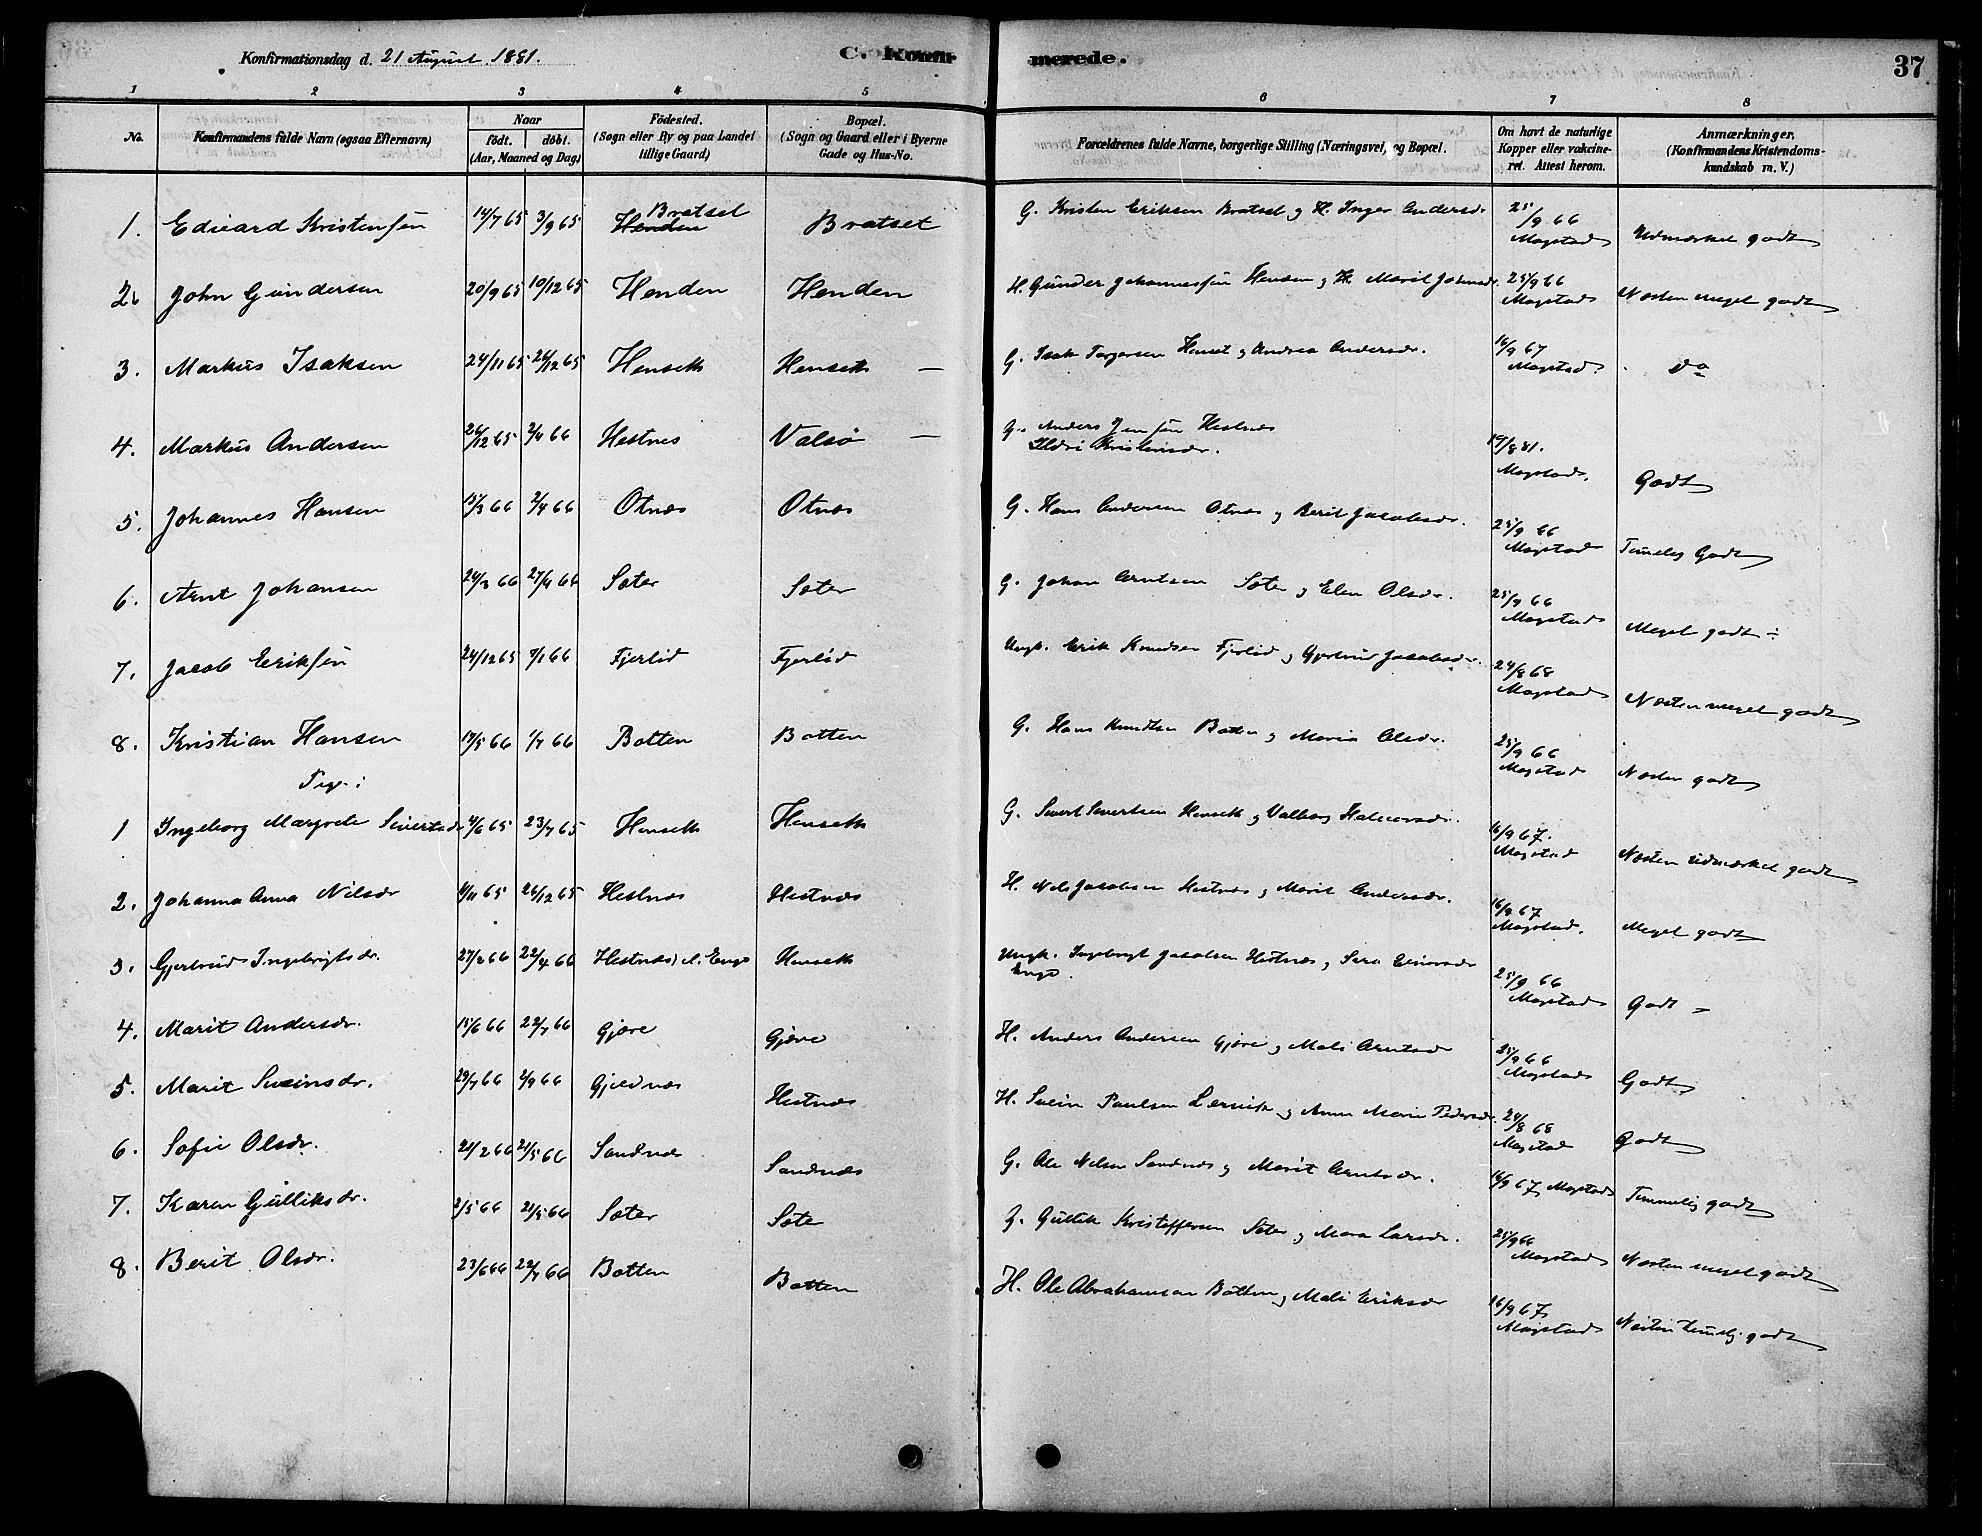 Konfirmationsdag d. 21 August 1881.
C. Konfirmerede.
37
1 2 3 4 5 6 7 8
No. Konfirmandens fulde Navn (ogsaa Efternavn) Naar født. døbt. (Aar, Maaned og Dag) Fødested. (Sogn eller By og paa Landet tillige Gaard) Bopæl. (Sogn og Gaard eller i Byerne Gade og Hus-No. Forældrenes fulde Navne, borgerlige Stilling (Næringsvei) og Bopæl. Om havt de naturlige Kopper eller vakcineret. Attest herom. Anmærkninger. (Konfirmandens Kristendomskundskab m. V.)
1. Edvard Kristensen 14/7 65 3/9 65 Henden Bratset Bratset G. Kristen Eriksen Bratset og H. Inger Andersdr 25/9 66 Magstad Udmærket godt
2. John Gundersen 20/9 65 10/12 65 Henden Henden H. Gunder Johannessen Henden og Marit Johnsdr. 25/9 66 Magstad Næsten meget godt
3. Markus Isaksen 24/11 65 26/12 65 Henseth Henseth — G. Isak Torgersen Henset og Andrea Andersdr. 16/9 67 Magstad. do
4. Markus Andersen 26/12 65 2/4 66 Hestnes Valsø — G. Anders Jensen Hestnæs
Ildri Kristensdr. 19/8 81. Magstad. Godt
5. Johannes Hansen 15/3 66 2/4 66 Otnæs Otnæs G. Hans Andersen Otnæs og Berit Jacobsdr. 25/9 66 Magstad Temelig Godt
6. Arnt Johansen 24/3 66 27/4 66 Søter Søter G. Johan Arntsen Søter og Elen Olsdr. 25/9 66 Magstad Meget godt ÷
7. Jacob Eriksen 24/12 65 7/1 66 Fjerlid Fjerlid Ungk. Erik Knudsen Fjerlid og Gjertrud Jacobsdr. 24/8 68 Magstad Næsten meget godt
8. Kristian Hansen 17/5 66 1/7 66 Botten Botten G. Hans Knudtsen Botten og Maria Olsdr. 25/9 66 Magstad Næsten godt
Pige:
1 Ingeborg Margrete Sivertsdr 4/6 65 23/7 65 Henseth Henseth G. Sivert Sivertsen Henseth og Valborg Halvorsdr. 16/9 67. Magstad Næsten udmærket godt
2. Johanna Anna Nilsdr 26/12 65 Hestnæs Hestnæs H. Nils Jacobsen Hestnæs og Marit Andersdr. 16/9 67 Magstad. Meget godt
3. Gjertrud Ingebrigtsdr. 27/2 66 22/4 66 Hestnæs Henseth Ungk. Ingebrigt Jacobsen Hestnæs og Sara
25/9 66 Magstad Godt –
4. Marit Andersdr. 15/6 66 22/7 66 Gjøre Gjøre H. Anders Andersen Gjøre og Mali Arntsdr 25/9 66 Magstad Godt
5. Marit Sveinsdr. 29/7 66 2/9 66 Gjeldnæs Hestnæs H. Svein Paulsen Lervik og Anne Marie Pedersdr. 24/8 68 Magstad Godt
6. Sofie Olsdr. 21/2 66 21/5 66 Sandnæs Sandnæs G. Ole Nilsen Sandnæs og Marit Arntsdr. 16/9 67 Magstad Temmelig godt
7. Karen Gulliksdr. 2/5 66 21/5 66 Søter Søter G. Gullik Kristoffersen Søter og Mara Larsdr. 25/9 66 Magstad Næsten meget godt
8. Berit Olsdr. 23/6 66 22/7 66 Botten Botten H. Ole Abrahamsen Botten og Mali Eriksdr 16/9 67 Magstad Næsten temelig godt